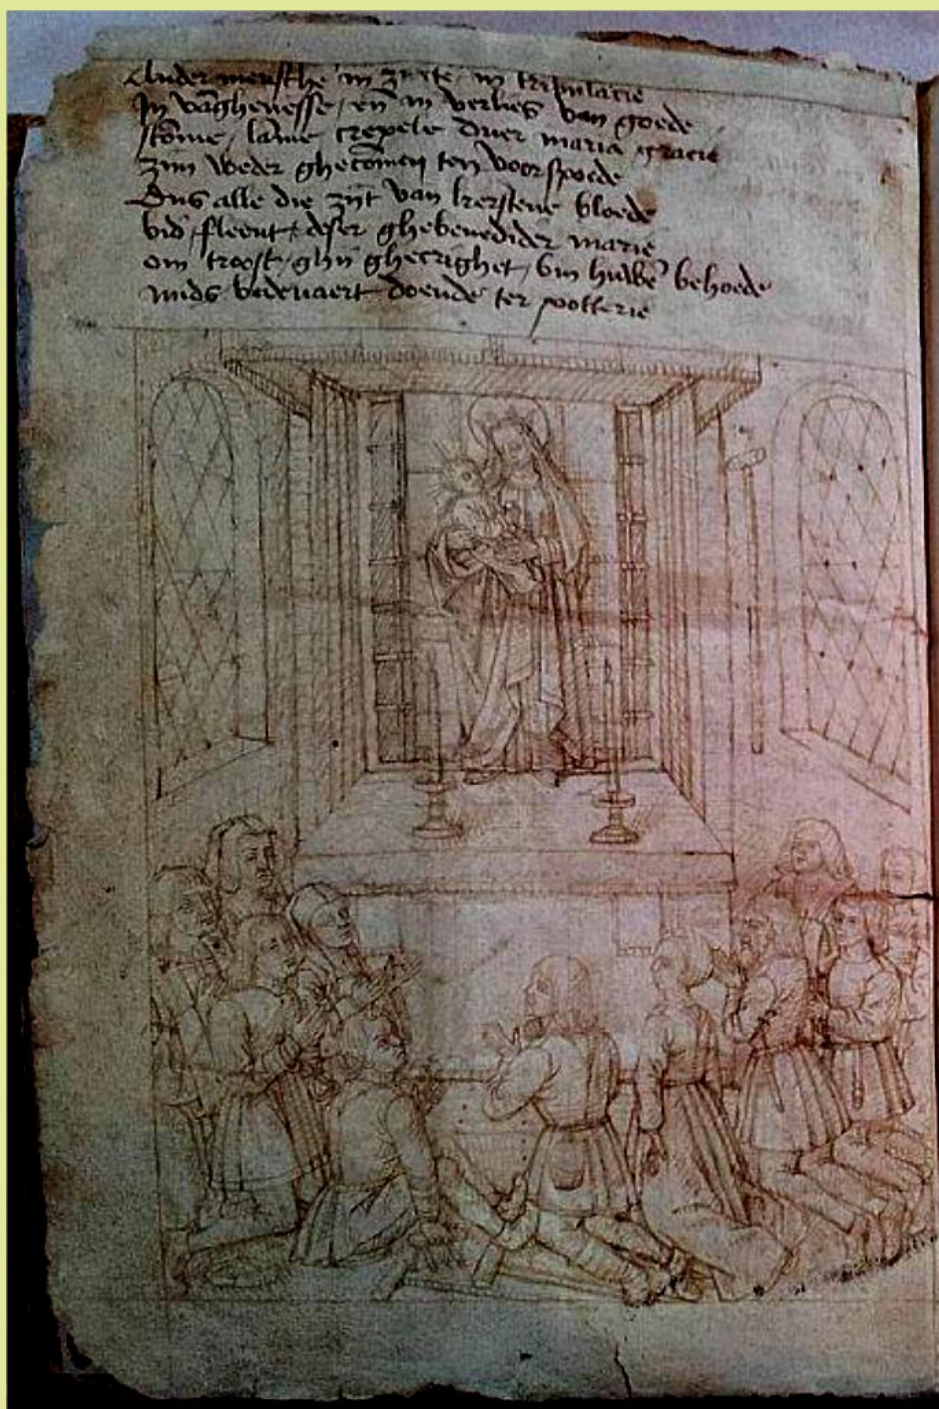 Ander mensche in ziecte in tribulacie
In vāghenesse / eñ in verlies van goede
stōme / lāme crepele duer maria gracie
zijn weder ghecōmen ten voorspoede
Dus alle die zijt van kerstene bloede
bid / fleent / deser ghebenedider marie
om troost / ghij ghecrighet / behoede
mids bedevaert doende ter potterie